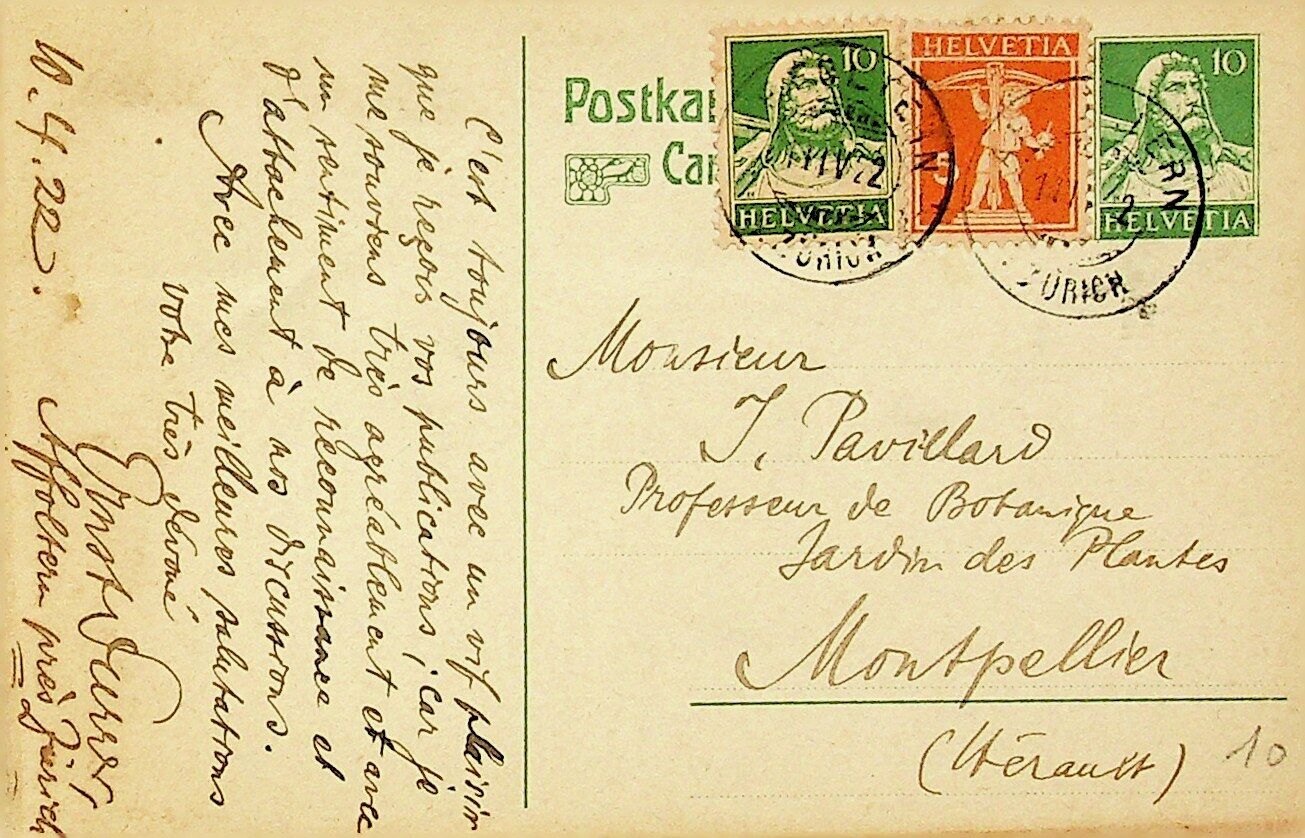 C'est toujours avec un vif plaisir
que je reçois vos publications, car je
me souviens très agréablement et avec
un sentiment de reconnaissance et
d'attachement à nos discussions.
Avec mes meilleures salutations
votre très dévoué
Ernst Furrer
Affoltern près Zürich
10.4.22.
Postkar
Car
10
HELVETIA
HELVETIA
5
10
HELVETIA
ZÜRICH
ZÜRICH
Monsieur
J. Pavillard
Professeur de Botanique
Jardin des Plantes
Montpellier
(Hérault)
10